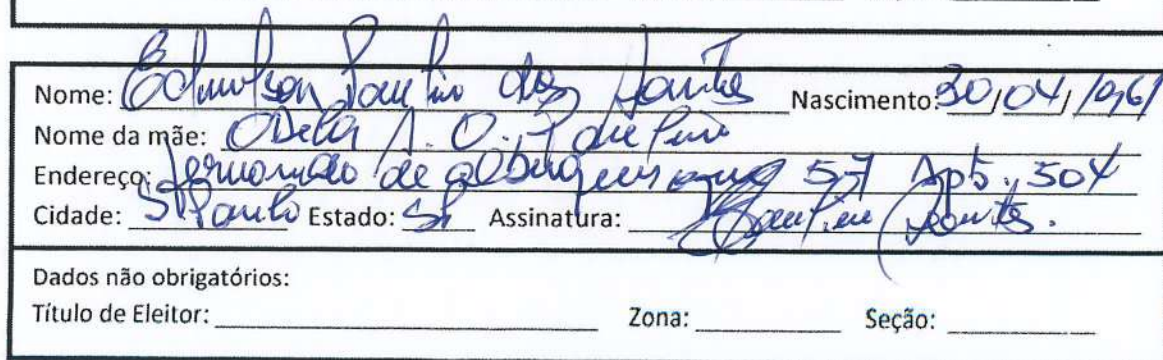 Nome: Edmilson Paulino dos Santos Nascimento: 30/04/1961
Nome da mãe: Odela A. O. Paulino
Endereço: Fernando de albuquerque 57 Apt. 504
Cidade: S Paulo Estado: SP Assinatura: Paulino Santos.
Dados não obrigatórios:
Título de Eleitor: Zona: Seção: